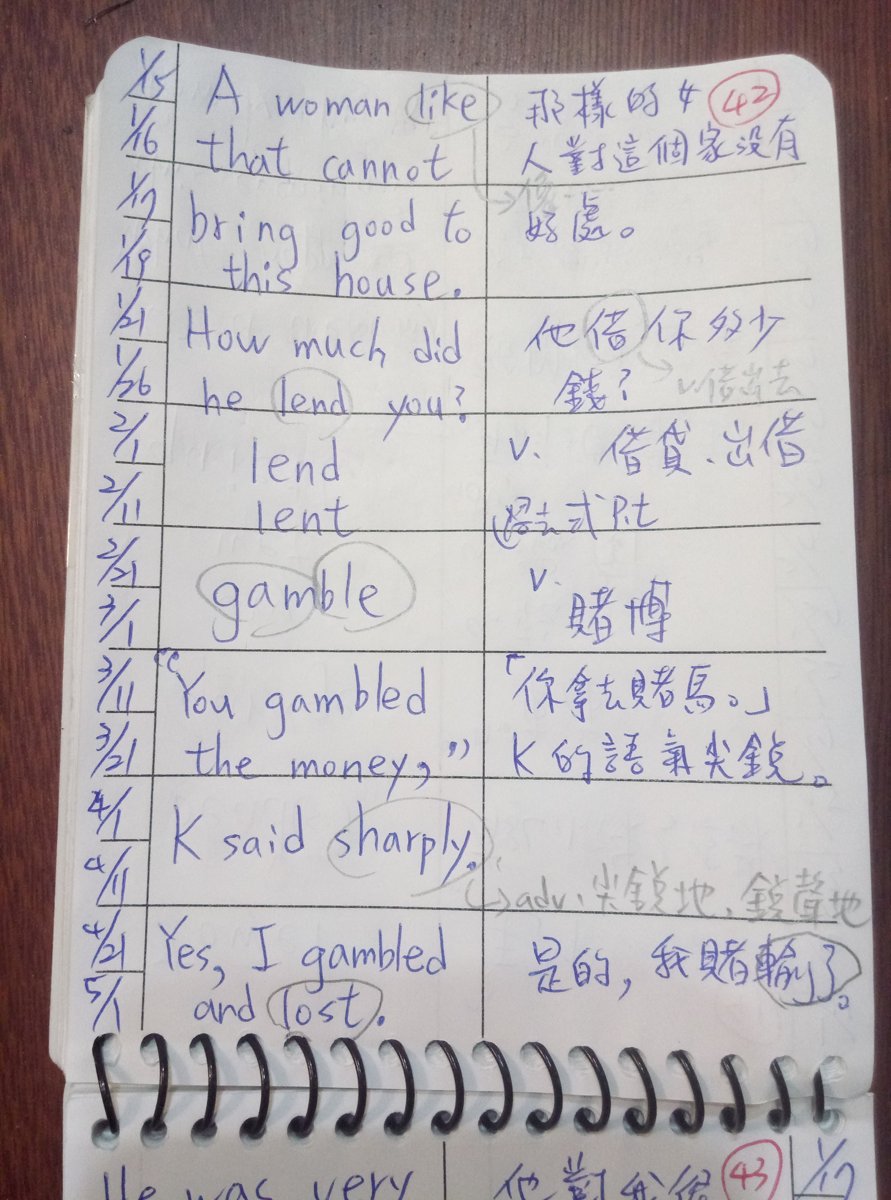 1/15
A woman like
那樣的女
42
1/16
that cannot
人對這個家没有
1/17
bring good to
像……
好處。
1/19
this house.
1/21
How much did
他借你多少
1/26
he lend you?
錢?
v.借出去
2/1
lend
v. 借貸、出借
2/11
lent
過去式 P.t
2/21
gamble
v.
賭博
3/1
3/11
“You gambled
「你拿去賭馬。」
3/21
the money,”
K的語氣尖銳。
4/1
K said sharply.
4/11
adv. 尖銳地、銳聲地
4/21
Yes, I gambled
是的, 我賭輸了。
5/1
and lost.
He was very
他對我很
43
1/17